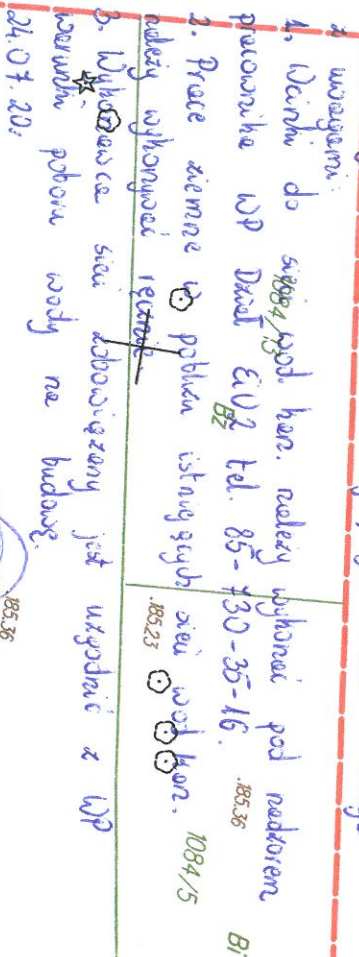 z uwagami:
1. Wcinki do sieci wod. kan. należy wykonać pod nadzorem
pracownika WP Dział EiU2 tel. 85-730-35-16.
2. Prace ziemne w pobliżu istniejących sieci wod kan.
należy wykonywać ręcznie.
3. Wykonawca sieci zobowiązany jest uzgodnić z WP
warunki poboru wody na budowę.
24.07.20
1084/13
Bz
.185.36
Bi
.185.23
1084/5
.185.36